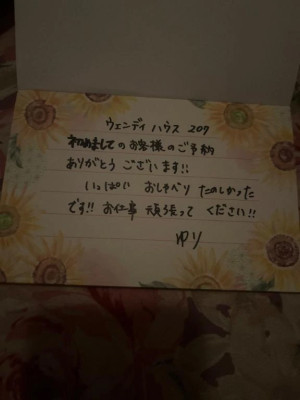 ウェンディ ハウス 207
初めましてのお客様のご予約
ありがとう ございます!!
いっぱい おしゃべり たのしかった
です!! お仕事 頑張って ください!!
ゆり